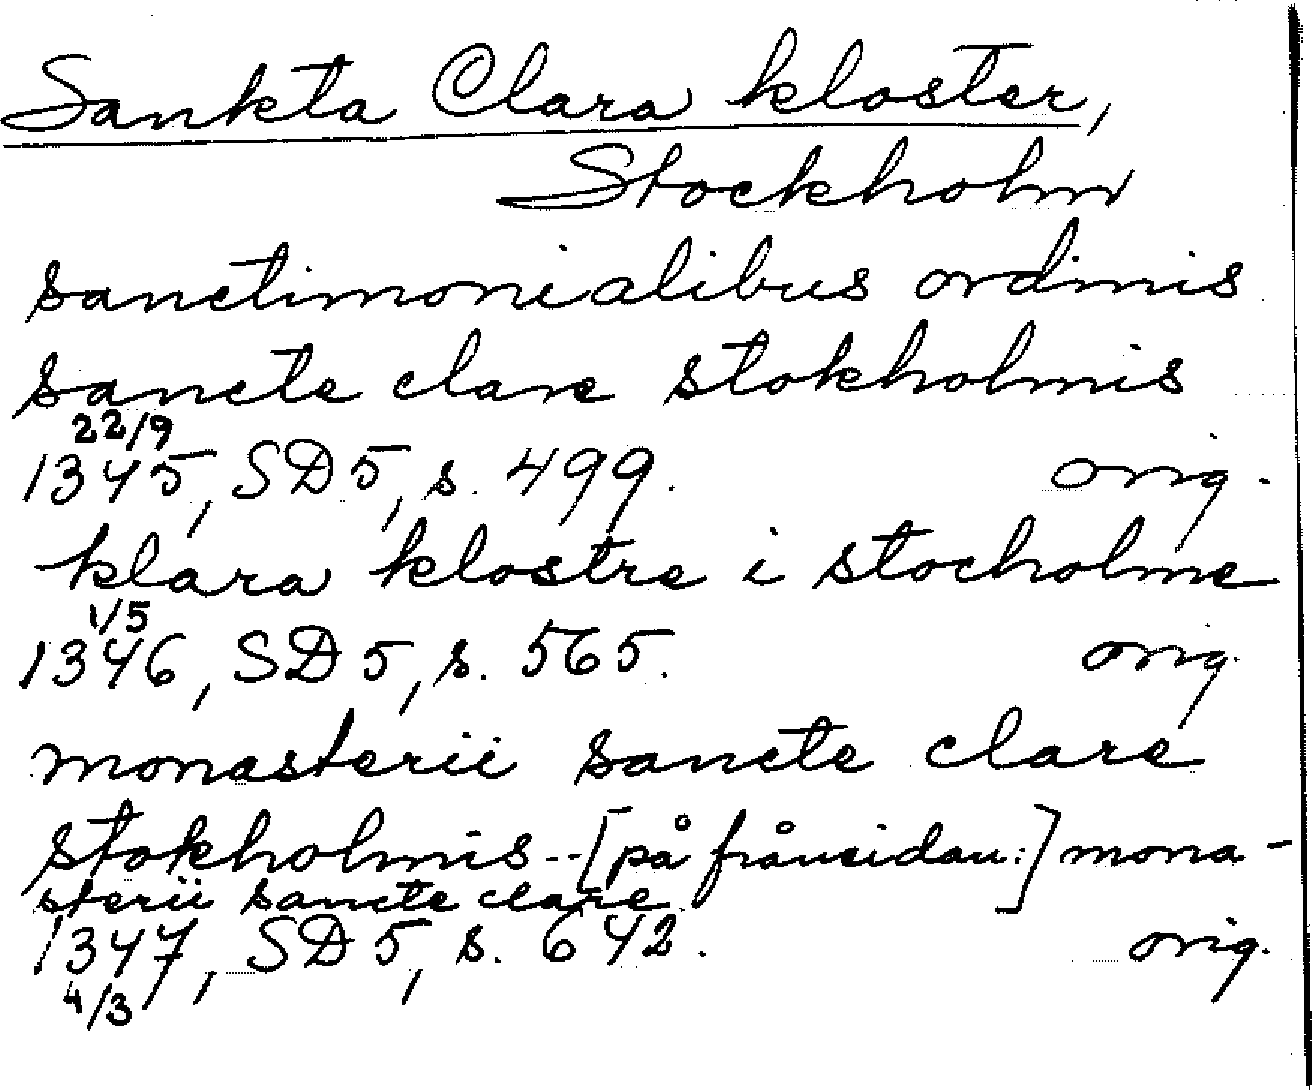 Sankta Clara kloster,
Stockholm
sanctimonialibus ordinis
sancte clare stokholmis
22/9
1345, SD 5, s. 499. orig.
klara klostre i stocholme
1/5
1346, SD 5, s. 565. orig.
monasterii sancte clare
stokholmis -- [på frånsidan:] mona-
sterii sancte clare
1347, SD 5, s. 642. orig.
4/3